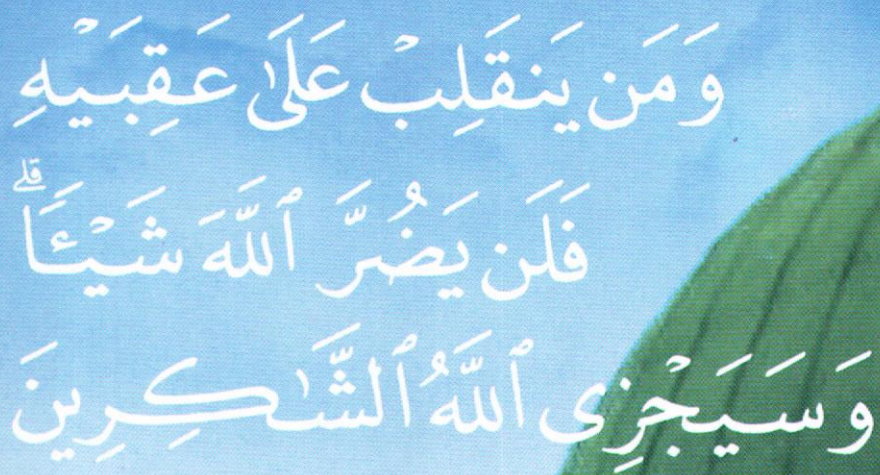 وَمَن يَنقَلِبْ عَلَىٰ عَقِبَيْهِ
فَلَن يَضُرَّ ٱللَّهَ شَيْـًٔا ۗ
وَسَيَجْزِى ٱللَّهُ ٱلشَّـٰكِرِينَ